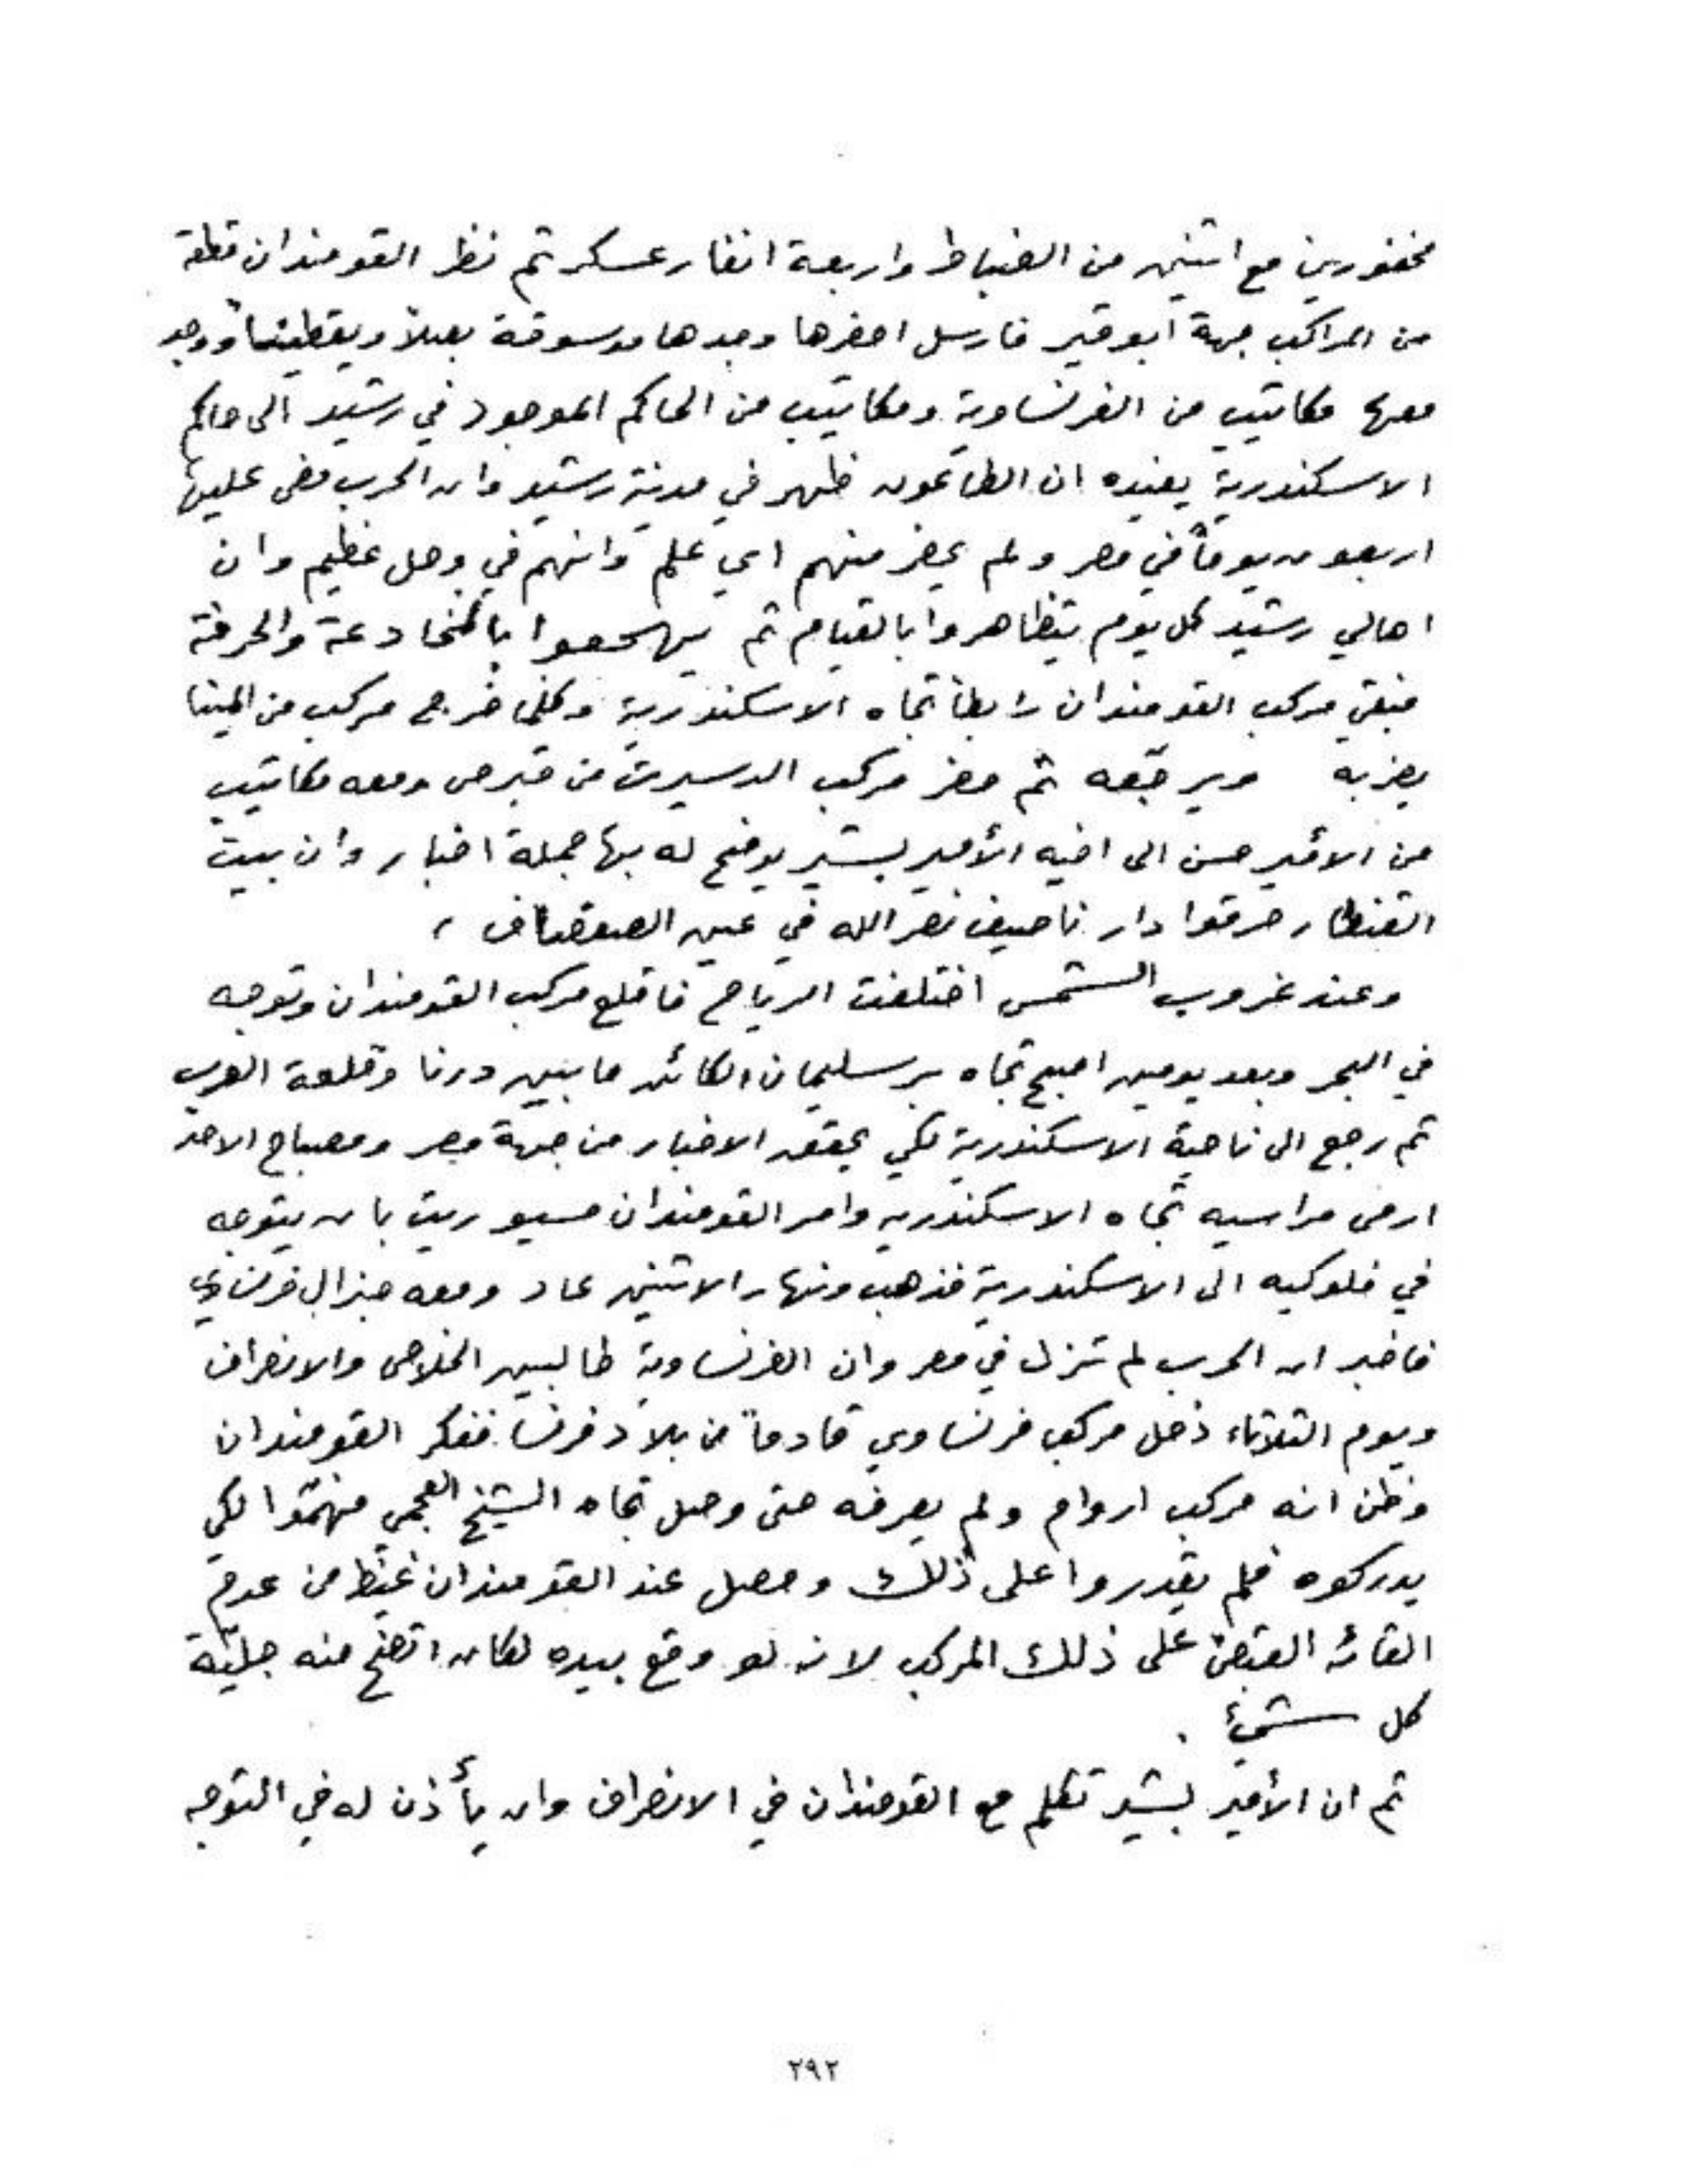 مخفورين مع اثنين من الضباط واربعة انفار عسكر ثم نظر القومندان قطعة
من المراكب جهة ابوقير فارسل احضرها وجدها موسوقة بصلاً ويقطيناً ووجد
معها مكاتيب من الفرنساوية ومكاتيب من الحاكم الموجود في رشيد الى حاكم
الاسكندرية يفيده ان الطاعون ظهر في مدينة رشيد وان الحرب مضى عليها
اربعون يوماً في مصر ولم يحضر منهم اي علم وانهم في وجل عظيم وان
اهالي رشيد كل يوم يتظاهروا بالقيام ثم بالمخادعة والحرفة
فبقي مركب القومندان رابطاً تجاه الاسكندرية وكلما خرج مركب من المينا
يضربه ويرجّعه ثم حضر مركب من قبرص ومعه مكاتيب
من الامير حسن الى اخيه الأمير بشير يوضح له بها جملة اخبار وان بيت
القنطار حرقوا دار ناصيف نصرالله في عين الصفصاف ،
وعند غروب الشمس اختلفت الرياح فاقلع مركب القومندان وتوجه
في البحر وبعد يومين اصبح تجاه بر سليمان الكائن ما بين درنا وقلعة العرب
ثم رجع الى ناحية الاسكندرية لكي يحقق الاخبار من جهة مصر ومصباح الاحد
ارمى مراسيه تجاه الاسكندرية وامر القومندان مسيو ريت بان يتوجه
في فلوكيه الى الاسكندرية فذهب ونهار الاثنين عاد ومعه جنرال فرنساوي
فاخبر ان الحرب لم تزل في مصر وان الفرنساوية طالبين الخلاص والانصراف
ويوم الثلاثاء دخل مركب فرنساوي قادماً من بلاد فرنسا ففكر القومندان
وظن انه مركب اروام ولم يعرفه حتى وصل تجاه الشيخ العجمي فهمّوا لكي
يدركوه فلم يقدروا على ذلك وحصل عند القومندان غيظ من عدم
القائه القبض على ذلك المركب لانه لو وقع بيده لكان اتضح منه جليّة
كل شيء .
ثم ان الأمير بشير تكلم مع القومندان في الانصراف وان يأذن له في التوجه
٢٩٢